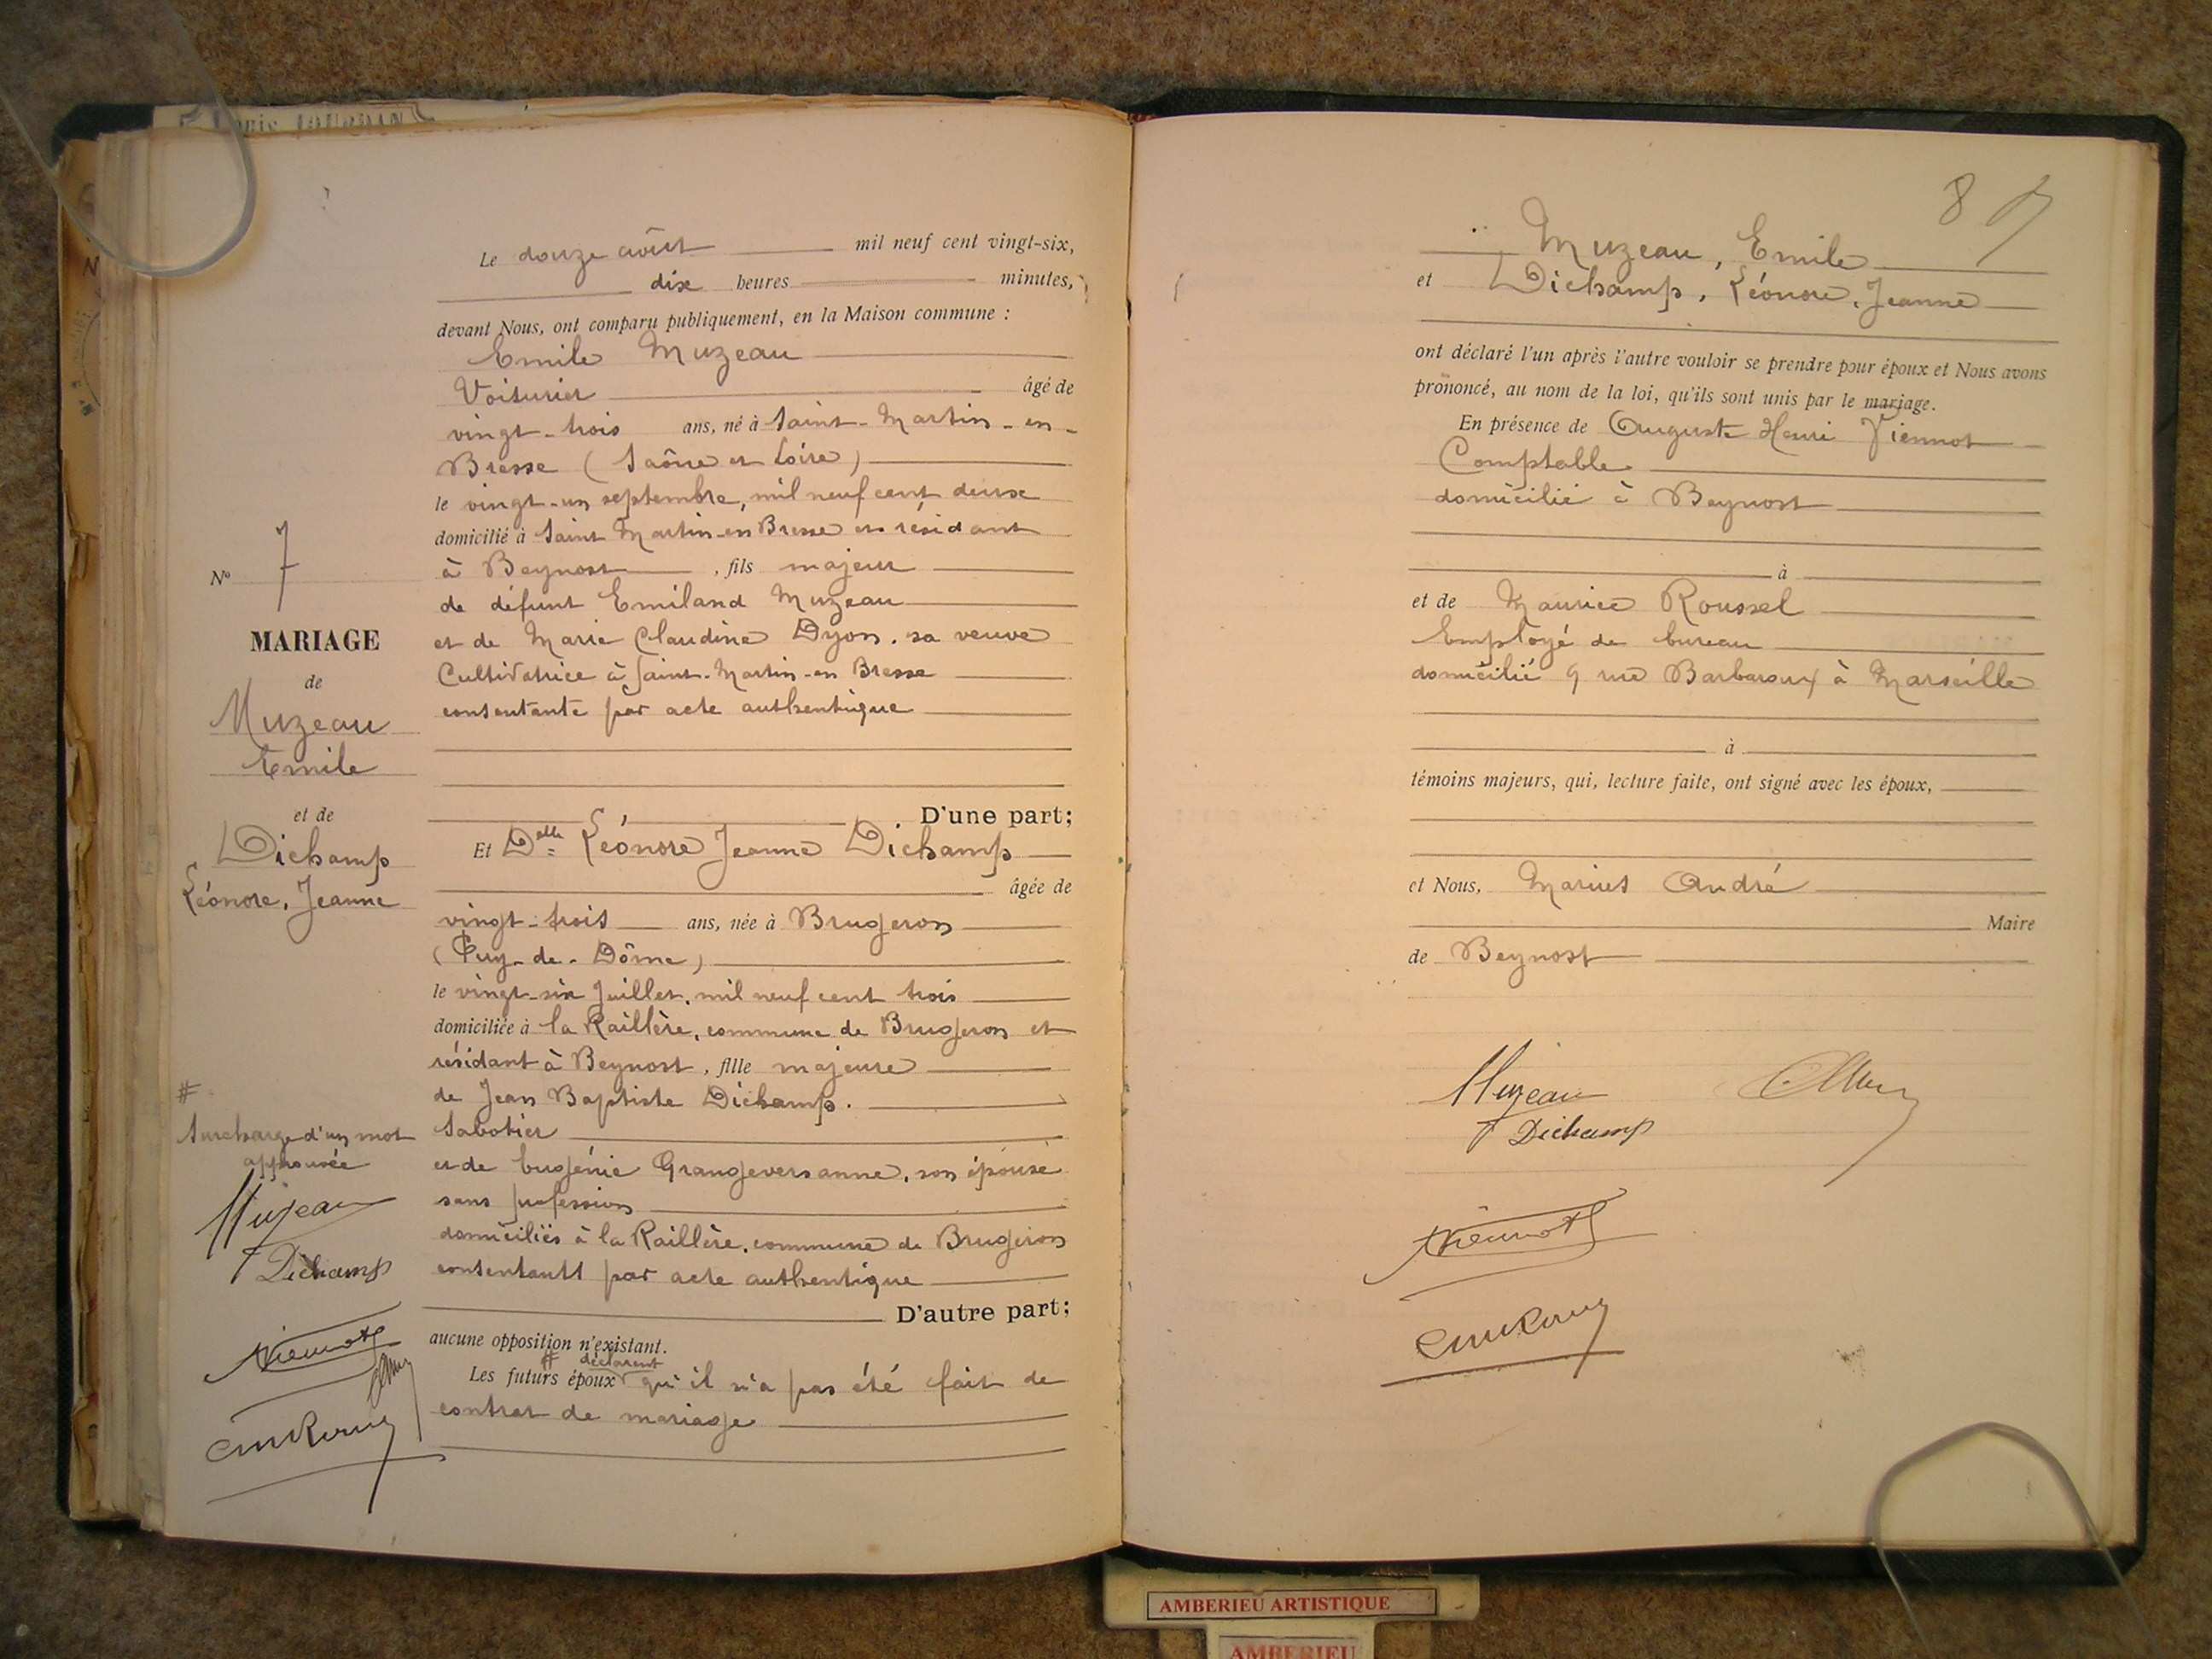 Louis JOURDAN
Le douze août mil neuf cent vingt-six,
dix heures minutes,
devant Nous, ont comparu publiquement, en la Maison commune :
Emile Muzeau
Voiturier âgé de
vingt-trois ans, né à Saint-Martin-en-
Bresse (Saône et Loire)
le vingt-un septembre, mil neuf cent deux
domicilié à Saint Martin-en Bresse et résidant
à Beynost, fils majeur
de défunt Emiland Muzeau
et de Marie Claudine Dyon, sa veuve
Cultivatrice à Saint-Martin-en Bresse
consentante par acte authentique
D'une part;
Et Delle Léonore Jeanne Dichamp
âgée de
vingt-trois ans, née à Brugeron
(Puy-de-Dôme)
le vingt-six Juillet, mil neuf cent trois
domiciliée à la Raillère, commune de Brugeron et
résidant à Beynost, fille majeure
de Jean Baptiste Dichamp.
Sabotier
et de Eugénie Grangeversanne, son épouse
sans profession
domiciliés à la Raillère, commune de Brugeron
consentants par acte authentique
D'autre part;
aucune opposition n'existant.
# déclarent
Les futurs époux qu'il n'a pas été fait de
contrat de mariage
N° 7
MARIAGE
de
Muzeau
Emile
et de
Dichamp
Léonore, Jeanne
#
Surcharge d'un mot
approuvée
Muzeau
Dichamp
Viennot
8
Muzeau, Emile
et Dichamp, Léonore, Jeanne
ont déclaré l'un après l'autre vouloir se prendre pour époux et Nous avons
prononcé, au nom de la loi, qu'ils sont unis par le mariage.
En présence de Auguste Henri Viennot
Comptable
domicilié à Beynost
à
et de Maurice Roussel
Employé de bureau
domicilié 9 rue Barbaroux à Marseille
à
témoins majeurs, qui, lecture faite, ont signé avec les époux,
et Nous, Marius André
Maire
de Beynost
Muzeau
Dichamp
Viennot
AMBERIEU ARTISTIQUE
AMBERIEU